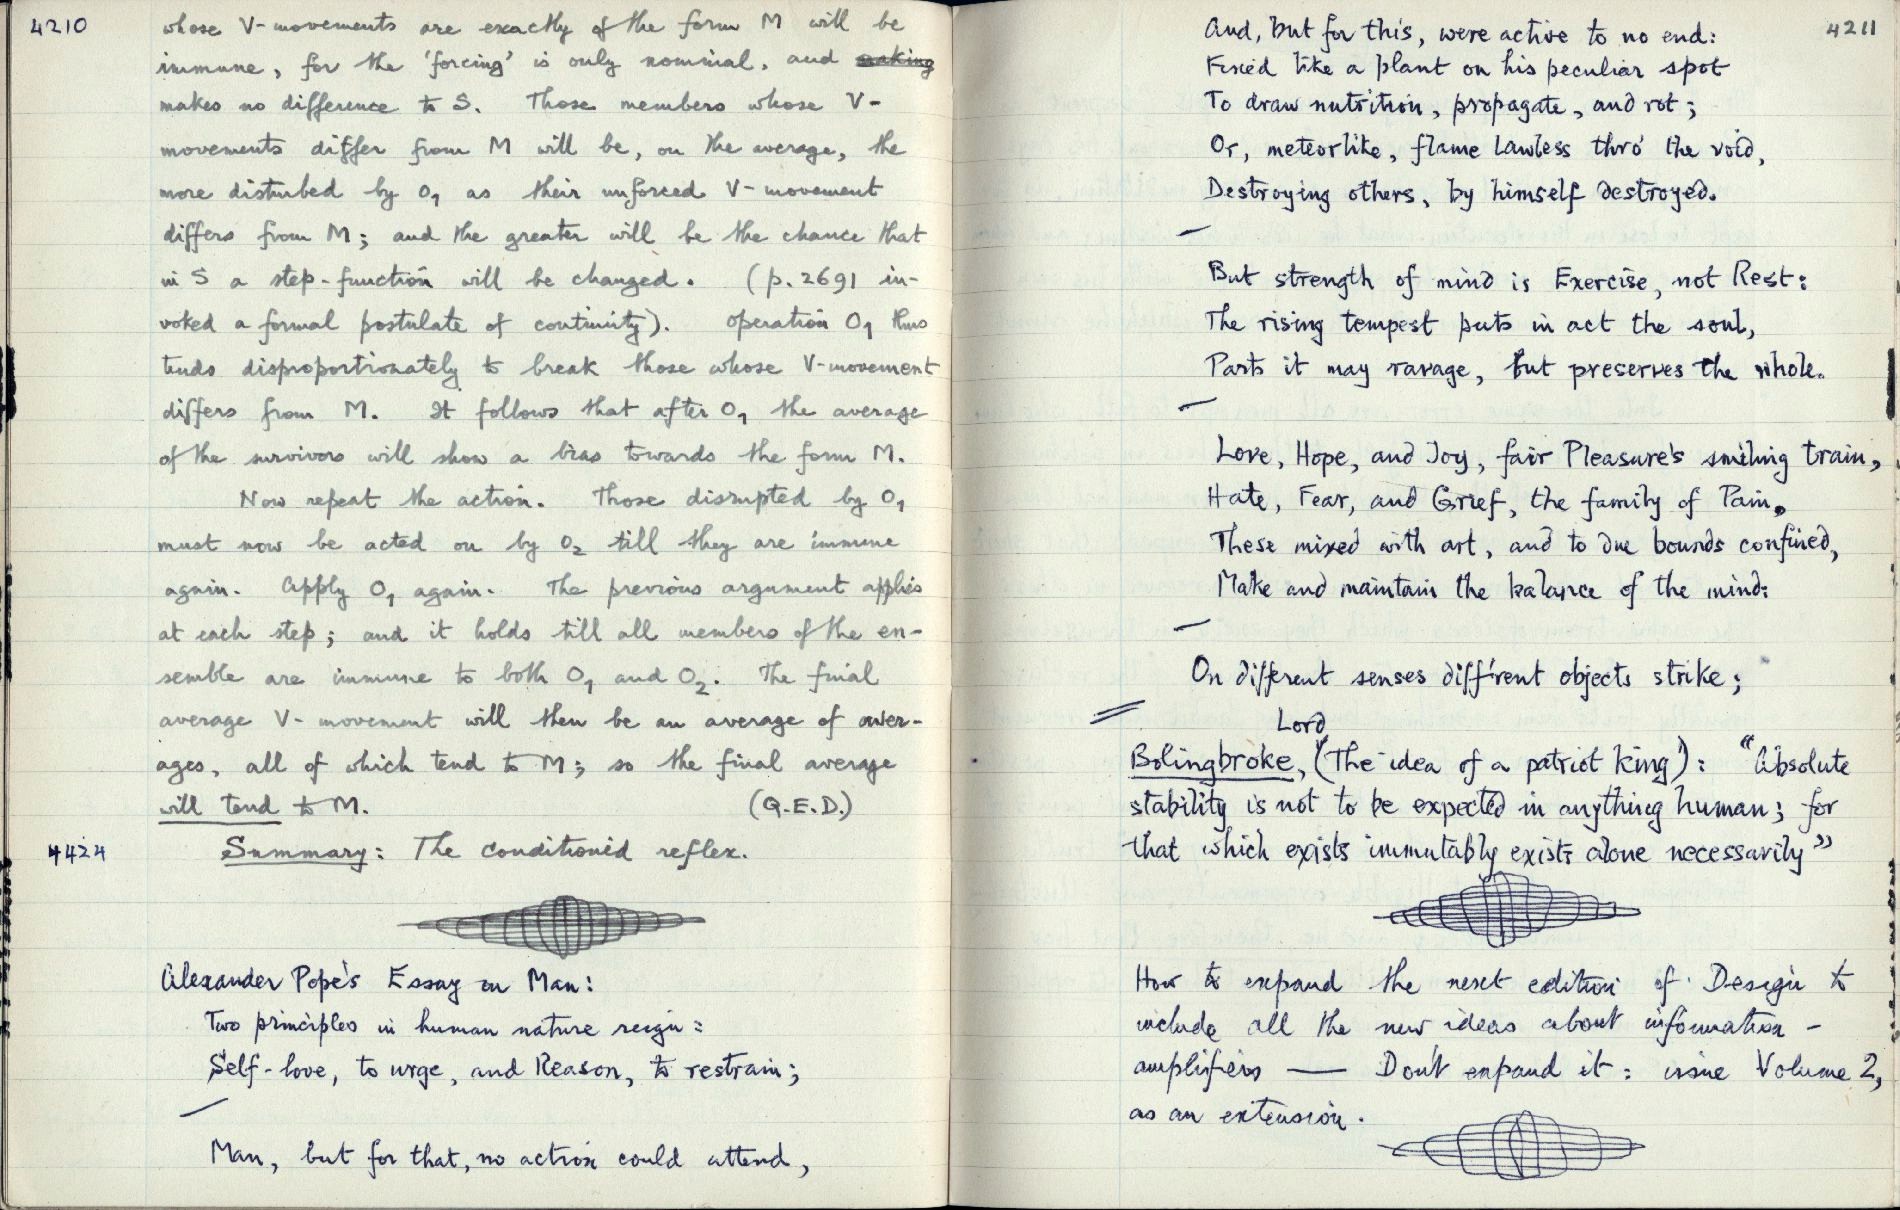 4210
whose V-movements are exactly of the form M will be
immune, for the 'forcing' is only nominal, and making
makes no difference to S. Those members whose V-
movements differ from M will be, on the average, the
more disturbed by O1 as their unforced V-movement
differs from M; and the greater will be the chance that
in S a step-function will be changed. (p. 2691 in-
voked a formal postulate of continuity). Operation O1 thus
tends disproportionately to break those whose V-movement
differs from M. It follows that after O1 the average
of the survivors will show a bias towards the form M.
Now repeat the action. Those disrupted by O1
must now be acted on by O2 till they are immune
again. Apply O1 again. The previous argument applies
at each step; and it holds till all members of the en-
semble are immune to both O1 and O2. The final
average V-movement will then be an average of aver-
ages, all of which tend to M; so the final average
will tend to M. (Q.E.D.)
4424 Summary: The conditioned reflex.
Alexander Pope's Essay on Man:
Two principles in human nature reign:
Self-love, to urge, and Reason, to restrain;
Man, but for that, no action could attend,
4211
And, but for this, were active to no end:
Fixed like a plant on his peculiar spot
To draw nutrition, propagate, and rot;
Or, meteorlike, flame lawless thro' the void,
Destroying others, by himself destroyed.
But strength of mind is Exercise, not Rest:
The rising tempest puts in act the soul,
Parts it may ravage, but preserves the whole.
Love, Hope, and Joy, fair Pleasure's smiling train,
Hate, Fear, and Grief, the family of Pain,
These mixed with art, and to due bounds confined,
Make and maintain the balance of the mind:
On different senses different objects strike;
Lord
Bolingbroke, (The idea of a patriot king): "Absolute
stability is not to be expected in anything human; for
that which exists immutably exists alone necessarily"
How to expand the next edition of Design to
include all the new ideas about information-
amplifiers — Don't expand it: issue Volume 2,
as an extension.